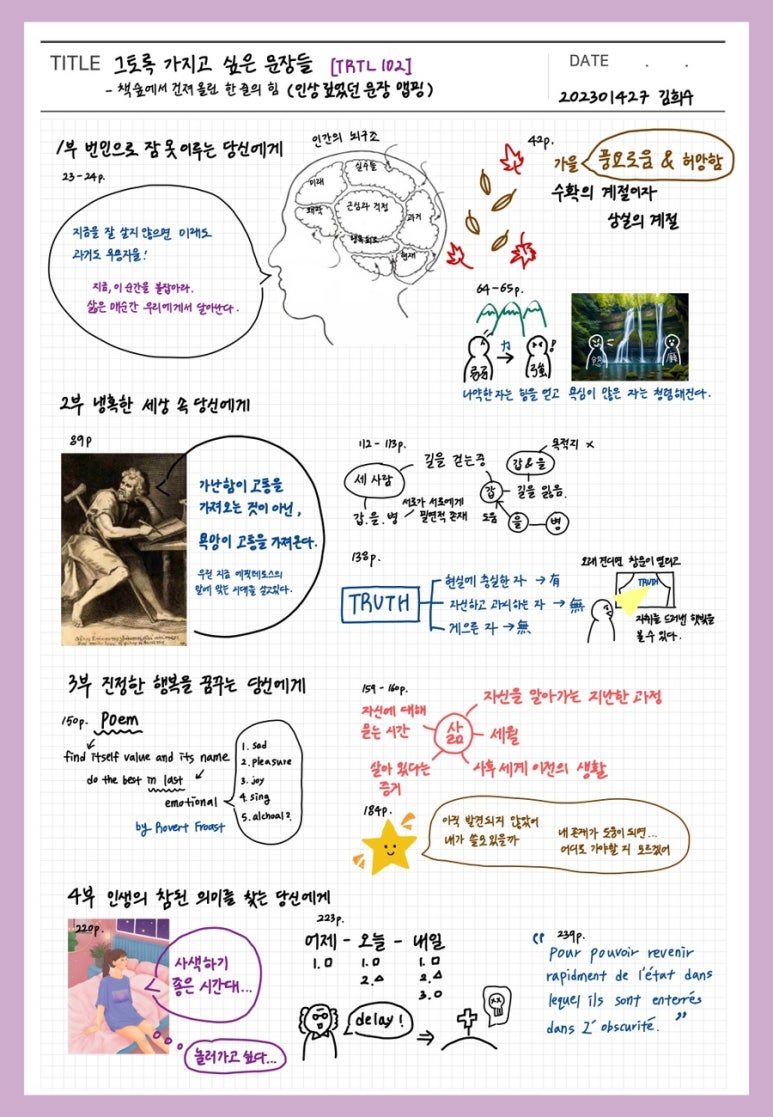 TITLE 그토록 가지고 싶은 문장들 [TRTL102]
- 책숲에서 건져 올린 한 줄의 힘 (인상 깊었던 문장 맵핑)
DATE . .
202301427 김희수
1부 번민으로 잠 못 이루는 당신에게
23-24p.
지금을 잘 살지 않으면 미래도
과거도 무용지물!
지금, 이 순간을 붙잡아라.
삶은 매순간 우리에게서 달아난다.
인간의 뇌구조
미래
실수들
쾌락
근심과 걱정
과거
행복회로
현재
42p.
가을
풍요로움 & 허망함
수확의 계절이자
상실의 계절
64-65p.
力
弱
強
나약한 자는 힘을 얻고 욕심이 많은 자는 청렴해진다.
2부 냉혹한 세상 속 당신에게
89p
가난함이 고통을
가져오는 것이 아닌,
욕망이 고통을 가져온다.
우린 지금 에픽테토스의
말에 맞는 시대를 살고있다.
112-113p.
세 사람
길을 걷는 중
갑.을.병
서로가 서로에게
필연적 존재
갑&을
목적지 x
갑
길을 잃음.
도움
을
병
138p.
TRUTH
현실에 충실한 자 → 有
자선하고 과시하는 자 → 無
게으른 자 → 無
오래 견디면 창문이 열리고
TRUTH
자취를 드러낸 햇빛을
볼 수 있다.
3부 진정한 행복을 꿈꾸는 당신에게
150p. Poem
find itself value and its name
do the best in last
emotional
by Rovert Froast
1. sad
2. pleasure
3. joy
4. sing
5. alchoal?
159-160p.
자신에 대해
묻는 시간
자신을 알아가는 지난한 과정
삶
세월
살아 있다는
증거
사후세계 이전의 생활
184p.
아직 발견되지 않았어
내가 쓸모있을까
내 존재가 도움이 되면...
어디로 가야할 지 모르겠어
4부 인생의 참된 의미를 찾는 당신에게
220p.
사색하기
좋은 시간대...
놀러가고 싶다...
223p.
어제 - 오늘 - 내일
1. □ 1. □ 1. □
2. △ 2. △
3. ○
delay!
239p.
“ Pour pouvoir revenir
rapidment de l'état dans
lequel ils sont enterrés
dans I'obscurité. ”